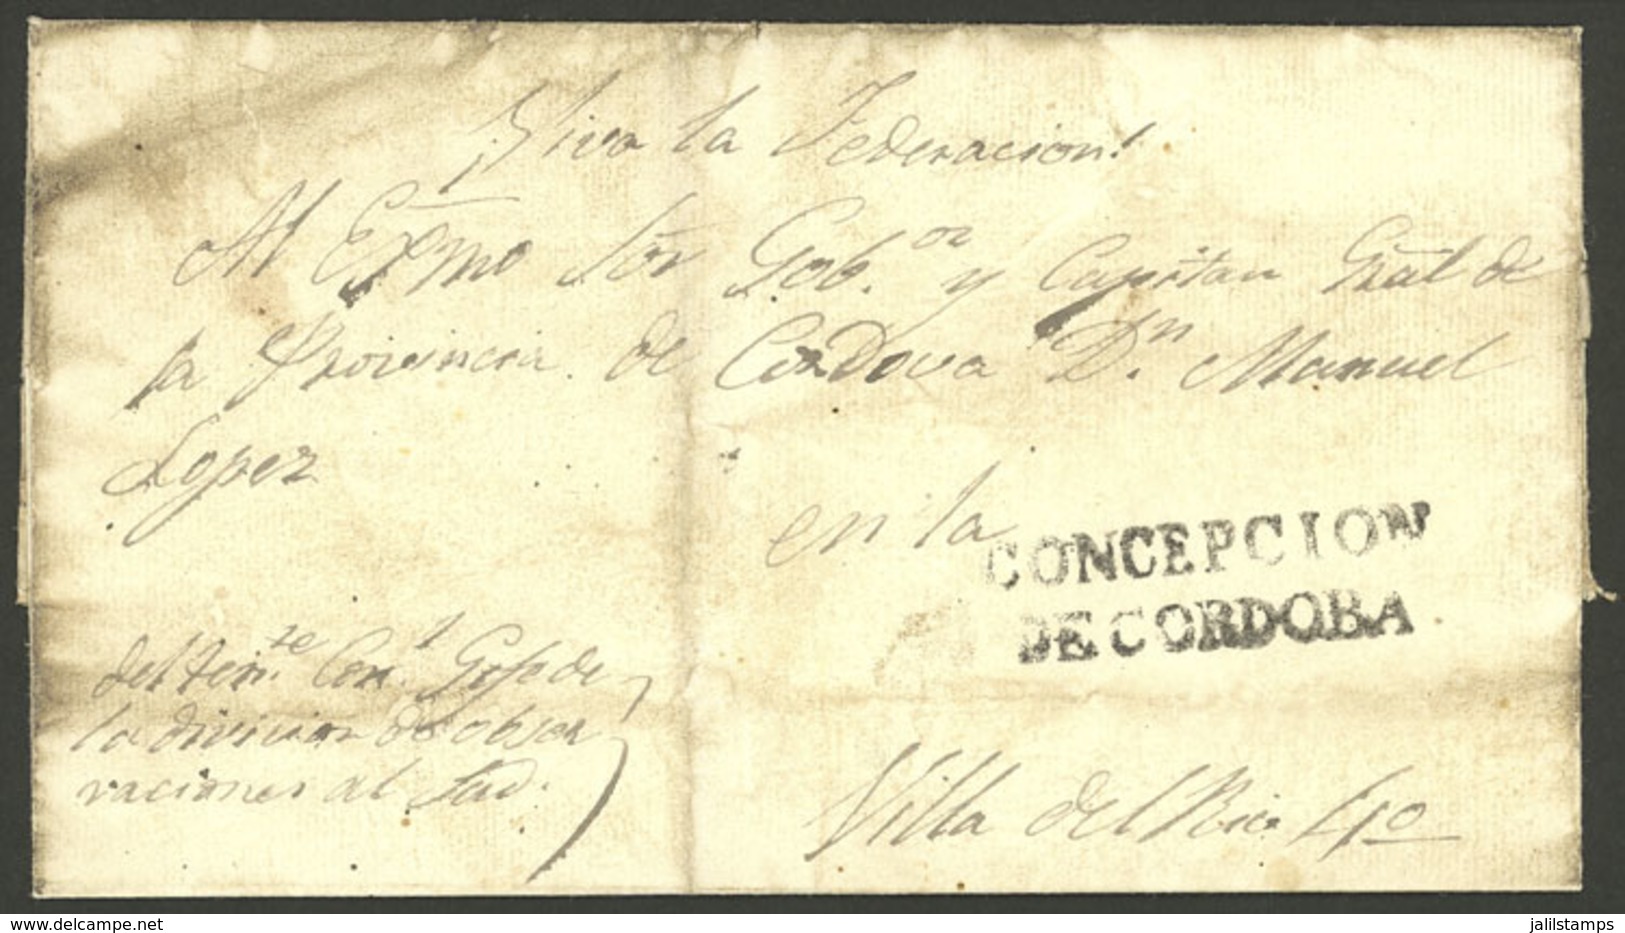 ¡Viva la Federacion!
Al Exmo Sõr Gob.or y Capitan Grãl de
la Provincia de Cordova Dn. Manuel
Lopez
en la
CONCEPCION
DE CORDOBA
del ten.te Con.l Gefe de
la division de obser
vaciones al Sud.
Villa del Rio 4o
delcampe.net
jalilstamps